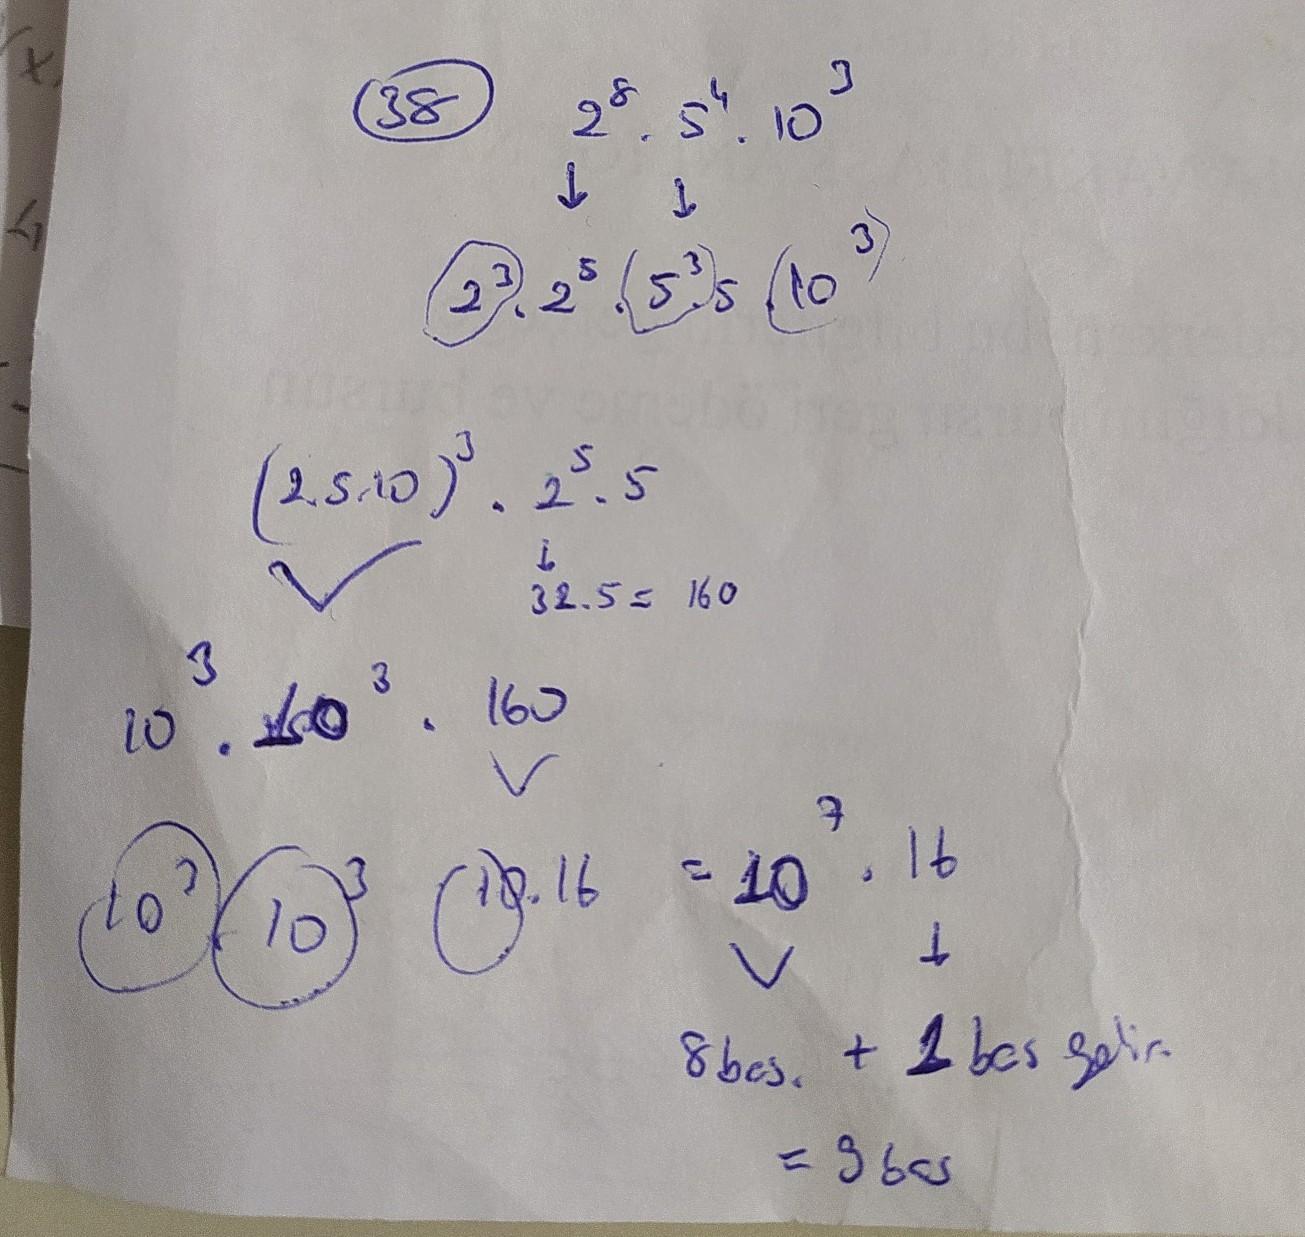 38 2⁸ . 5⁴ . 10³
↓ ↓
2³ . 2⁵ . (5³) . 5 . (10³)
(2.5.10)³ . 2⁵ . 5
↓
32.5 = 160
10³ . 10³ . 160
10³ . 10³ 10.16 = 10⁷ . 16
↓
8 bas. + 1 bas gelir.
= 9 bas